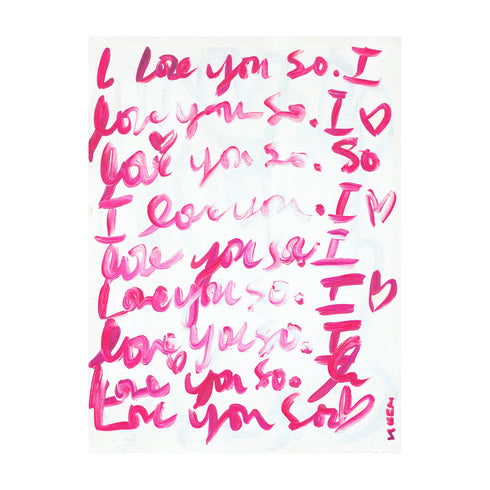 I Love you so. I
love you so. I
love you so. So
I love you. I
love you so. I
Love you so. I
love you so. I
Love you so.
Love you so